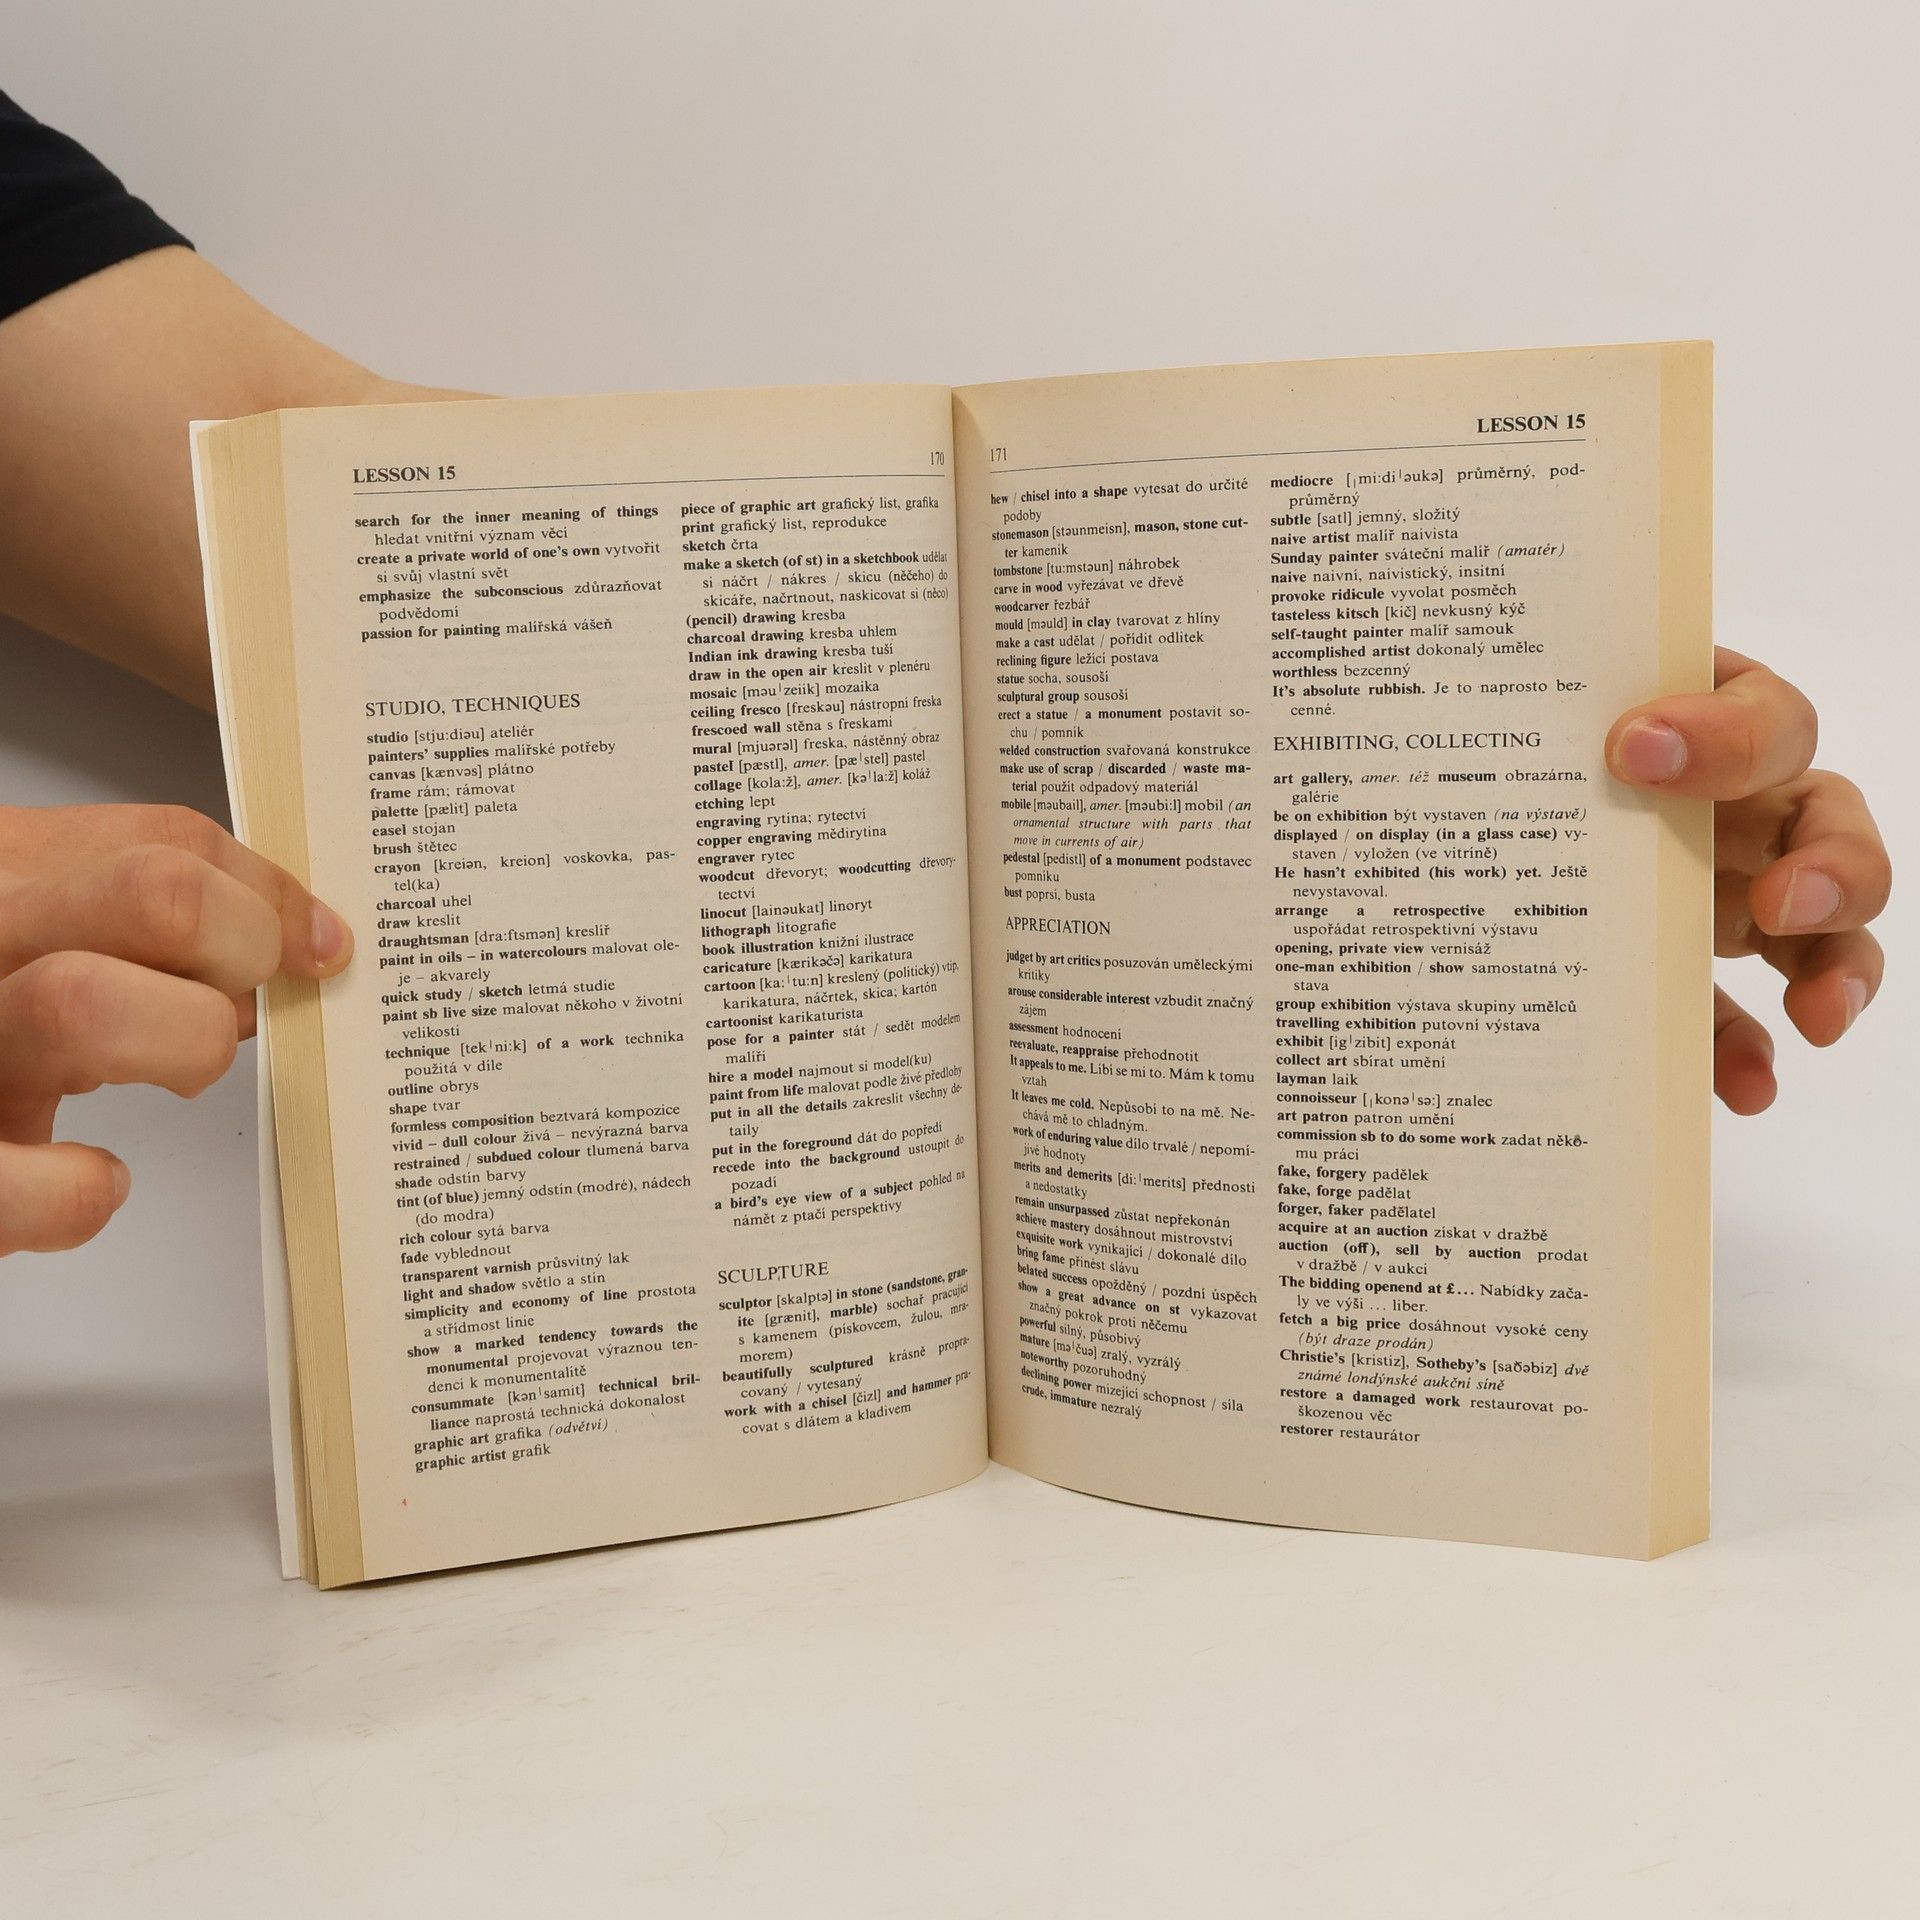 LESSON 15
170
search for the inner meaning of things
hledat vnitřní význam věcí
create a private world of one's own vytvořit
si svůj vlastní svět
emphasize the subconscious zdůrazňovat
podvědomí
passion for painting malířská vášeň
STUDIO, TECHNIQUES
studio [stju:diəu] ateliér
painters' supplies malířské potřeby
canvas [kænvəs] plátno
frame rám; rámovat
palette [pælit] paleta
easel stojan
brush štětec
crayon [kreiən, kreion] voskovka, pas-
tel(ka)
charcoal uhel
draw kreslit
draughtsman [dra:ftsmən] kreslíř
paint in oils – in watercolours malovat ole-
je – akvarely
quick study / sketch letmá studie
paint sb live size malovat někoho v životní
velikosti
technique [tekˈni:k] of a work technika
použitá v díle
outline obrys
shape tvar
formless composition beztvará kompozice
vivid – dull colour živá – nevýrazná barva
restrained / subdued colour tlumená barva
shade odstín barvy
tint (of blue) jemný odstín (modré), nádech
(do modra)
rich colour sytá barva
fade vyblednout
transparent varnish průsvitný lak
light and shadow světlo a stín
simplicity and economy of line prostota
a střídmost linie
show a marked tendency towards the
monumental projevovat výraznou ten-
denci k monumentalitě
consummate [kənˈsamit] technical bril-
liance naprostá technická dokonalost
graphic art grafika (odvětví)
graphic artist grafik
piece of graphic art grafický list, grafika
print grafický list, reprodukce
sketch črta
make a sketch (of st) in a sketchbook udělat
si náčrt / nákres / skicu (něčeho) do
skicáře, načrtnout, naskicovat si (něco)
(pencil) drawing kresba
charcoal drawing kresba uhlem
Indian ink drawing kresba tuší
draw in the open air kreslit v plenéru
mosaic [məuˈzeiik] mozaika
ceiling fresco [freskəu] nástropní freska
frescoed wall stěna s freskami
mural [mjuərəl] freska, nástěnný obraz
pastel [pæstl], amer. [pæˈstel] pastel
collage [kola:ž], amer. [kəˈla:ž] koláž
etching lept
engraving rytina; rytectví
copper engraving mědirytina
engraver rytec
woodcut dřevoryt; woodcutting dřevory-
tectví
linocut [lainəukat] linoryt
lithograph litografie
book illustration knižní ilustrace
caricature [kærikəčə] karikatura
cartoon [ka:ˈtu:n] kreslený (politický) vtip,
karikatura, náčrtek, skica; kartón
cartoonist karikaturista
pose for a painter stát / sedět modelem
malíři
hire a model najmout si model(ku)
paint from life malovat podle živé předlohy
put in all the details zakreslit všechny de-
taily
put in the foreground dát do popředí
recede into the background ustoupit do
pozadí
a bird's eye view of a subject pohled na
námět z ptačí perspektivy
SCULPTURE
sculptor [skalptə] in stone (sandstone, gran-
ite [grænit], marble) sochař pracující
s kamenem (pískovcem, žulou, mra-
morem)
beautifully sculptured krásně propra-
covaný / vytesaný
work with a chisel [čizl] and hammer pra-
covat s dlátem a kladivem
171
LESSON 15
hew / chisel into a shape vytesat do určité
podoby
stonemason [stəunmeisn], mason, stone cut-
ter kameník
tombstone [tu:mstəun] náhrobek
carve in wood vyřezávat ve dřevě
woodcarver řezbář
mould [məuld] in clay tvarovat z hlíny
make a cast udělat / pořídit odlitek
reclining figure ležící postava
statue socha, sousoší
sculptural group sousoší
erect a statue / a monument postavit so-
chu / pomník
welded construction svařovaná konstrukce
make use of scrap / discarded / waste ma-
terial použít odpadový materiál
mobile [məubail], amer. [məubi:l] mobil (an
ornamental structure with parts that
move in currents of air)
pedestal [pedistl] of a monument podstavec
pomníku
bust poprsí, busta
APPRECIATION
judget by art critics posuzován uměleckými
kritiky
arouse considerable interest vzbudit značný
zájem
assessment hodnocení
reevaluate, reappraise přehodnotit
It appeals to me. Líbí se mi to. Mám k tomu
vztah
It leaves me cold. Nepůsobí to na mě. Ne-
chává mě to chladným.
work of enduring value dílo trvalé / nepomí-
jivé hodnoty
merits and demerits [di:ˈmerits] přednosti
a nedostatky
remain unsurpassed zůstat nepřekonán
achieve mastery dosáhnout mistrovství
exquisite work vynikající / dokonalé dílo
bring fame přinést slávu
belated success opožděný / pozdní úspěch
show a great advance on st vykazovat
značný pokrok proti něčemu
powerful silný, působivý
mature [məˈčuə] zralý, vyzrálý
noteworthy pozoruhodný
declining power mizející schopnost / síla
crude, immature nezralý
mediocre [ˌmi:diˈəukə] průměrný, pod-
průměrný
subtle [satl] jemný, složitý
naive artist malíř naivista
Sunday painter sváteční malíř (amatér)
naive naivní, naivistický, insitní
provoke ridicule vyvolat posměch
tasteless kitsch [kič] nevkusný kýč
self-taught painter malíř samouk
accomplished artist dokonalý umělec
worthless bezcenný
It's absolute rubbish. Je to naprosto bez-
cenné.
EXHIBITING, COLLECTING
art gallery, amer. též museum obrazárna,
galérie
be on exhibition být vystaven (na výstavě)
displayed / on display (in a glass case) vy-
staven / vyložen (ve vitríně)
He hasn't exhibited (his work) yet. Ještě
nevystavoval.
arrange a retrospective exhibition
uspořádat retrospektivní výstavu
opening, private view vernisáž
one-man exhibition / show samostatná vý-
stava
group exhibition výstava skupiny umělců
travelling exhibition putovní výstava
exhibit [igˈzibit] exponát
collect art sbírat umění
layman laik
connoisseur [ˌkonəˈsə:] znalec
art patron patron umění
commission sb to do some work zadat něko-
mu práci
fake, forgery padělek
fake, forge padělat
forger, faker padělatel
acquire at an auction získat v dražbě
auction (off), sell by auction prodat
v dražbě / v aukci
The bidding openend at £... Nabídky zača-
ly ve výši ... liber.
fetch a big price dosáhnout vysoké ceny
(být draze prodán)
Christie's [kristiz], Sotheby's [saðəbiz] dvě
známé londýnské aukční síně
restore a damaged work restaurovat po-
škozenou věc
restorer restaurátor